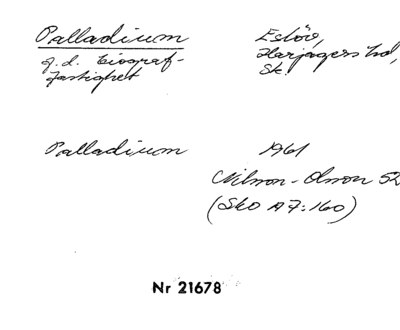 Palladium
f.d. biograf-
fastighet
Eslöv,
Harjagers hd,
Sk.
Palladium
1961
Nilsson-Olsson 52
(Sko A 7:160)
Nr 21678